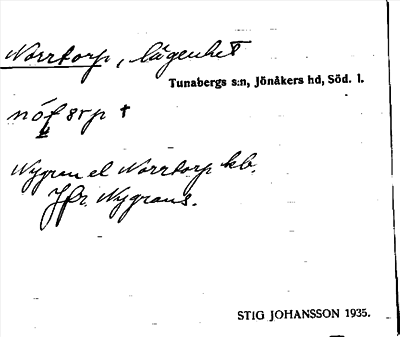 Norrtorp, lägenhet
Tunabergs s:n, Jönåkers hd, Söd. l.
Nygren el Norrtorp kb.
Jfr. Nygrans.
STIG JOHANSSON 1935.